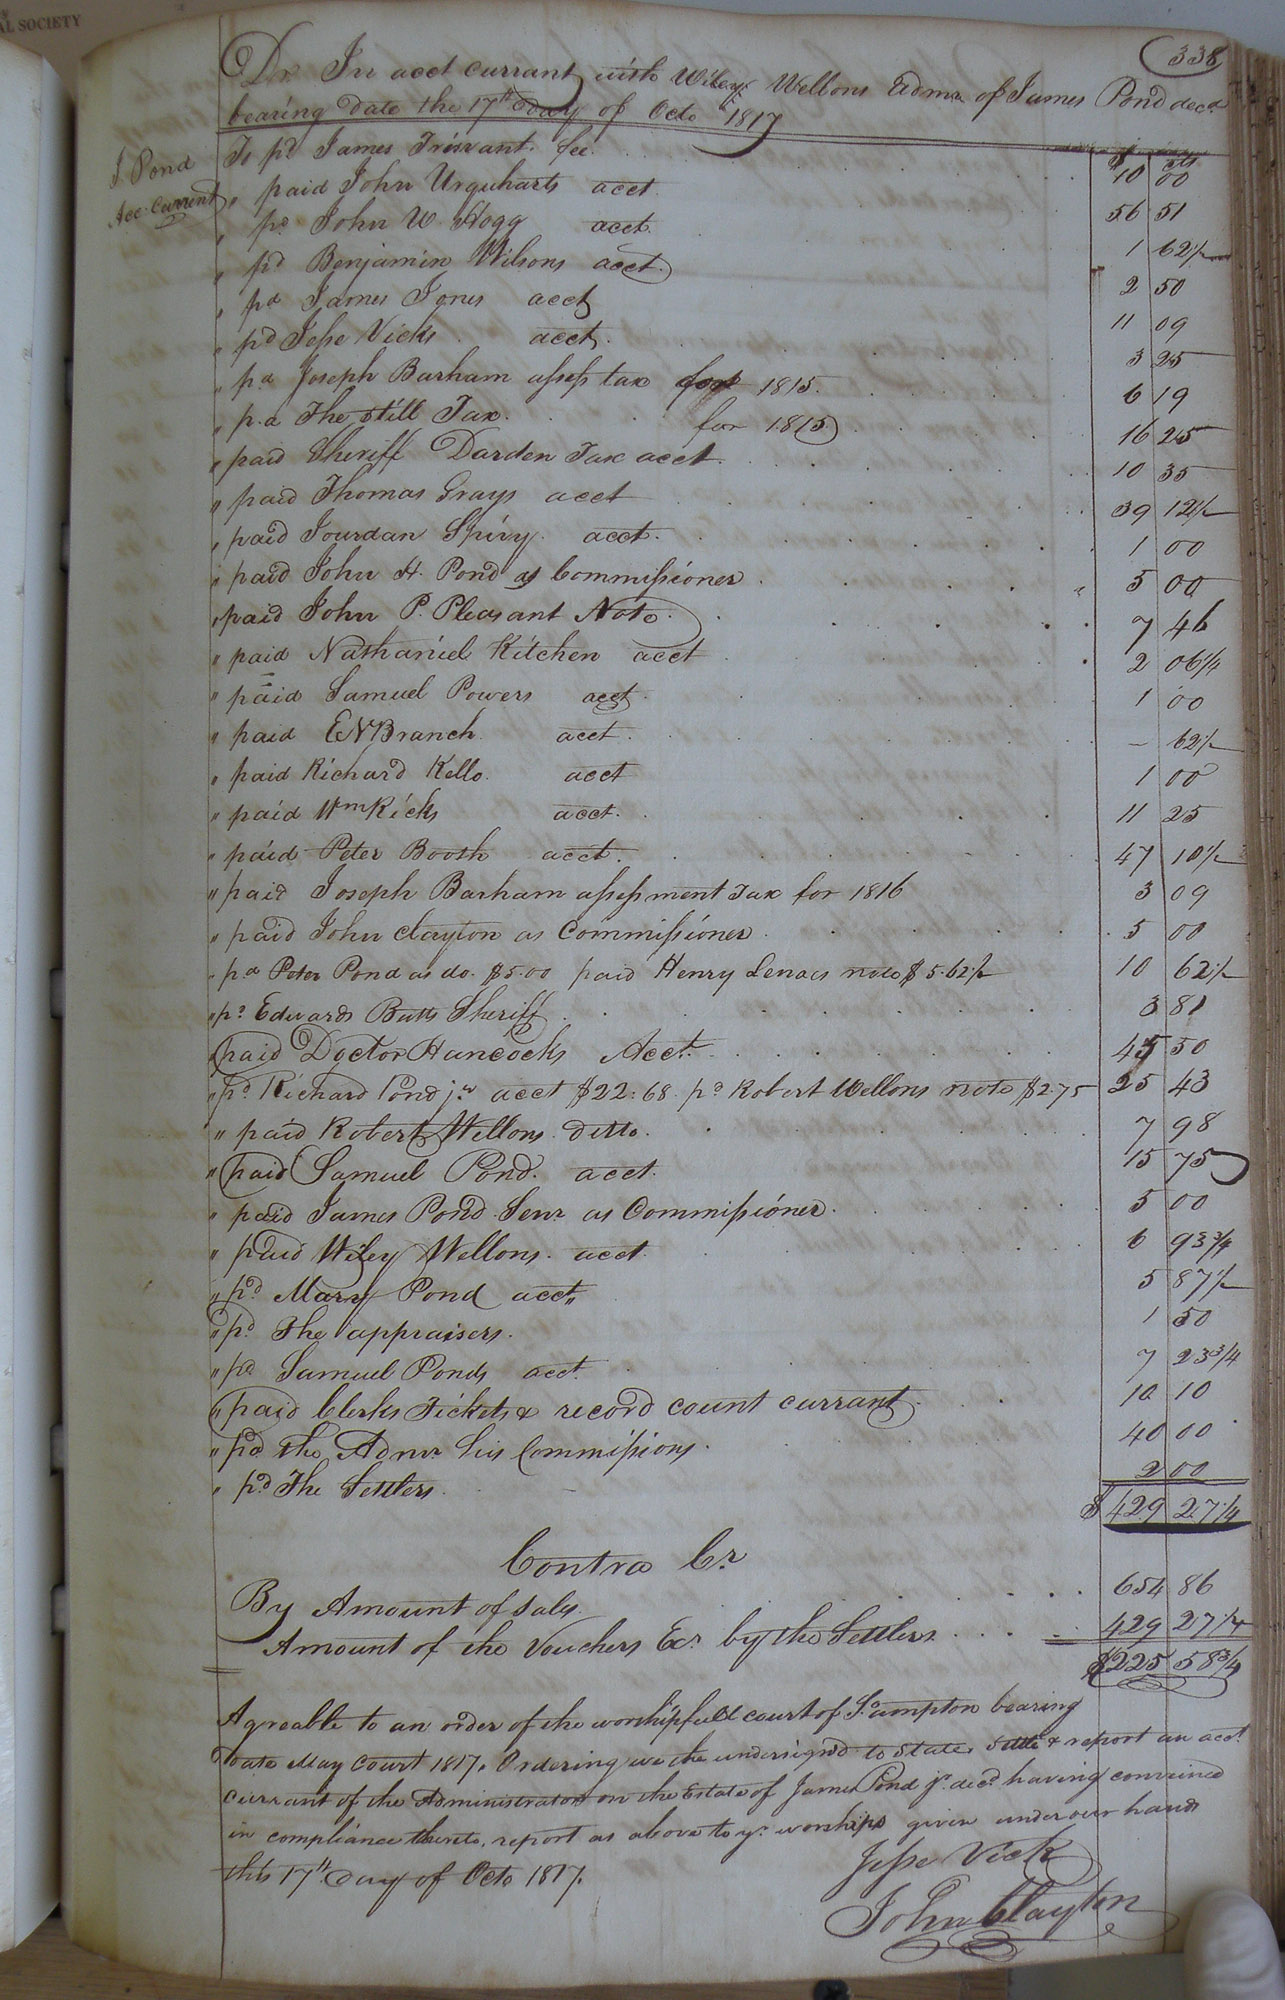 AL SOCIETY
338
Dr. In acct currant with Wiley Wellons Admr of James Pond decd
bearing date the 17th Day of Octo 1817
J. Pond
Acc. Current
$ cts
To pd James Trezvant fee 10 00
" paid John Urquharts acct 56 51
" pd John W. Hogg acct. 1 62½
" pd Benjamin Wilsons acct. 2 50
" pd James Jones acct 11 09
" pd Jesse Vicks acct. 3 25
" pd Joseph Barham assess tax for 1815. 6 19
" pd The still Tax. for 1815 16 25
" paid Sheriff Darden Tax acct. 10 35
" paid Thomas Grays acct 39 12½
" paid Jourdan Spivy acct. 1 00
" paid John H. Pond as Commissioner 5 00
" paid John P. Pleasant Note. 7 46
" paid Nathaniel Kitchen acct 2 06¼
" paid Samuel Powers acct 1 00
" paid EN Branch acct. – 62½
" paid Richard Kello. acct 1 00
" paid Wm Ricks acct. 11 25
" paid Peter Booth acct. 47 10½
" paid Joseph Barham assessment Tax for 1816 3 09
" paid John Clayton as Commissioner 5 00
" pd Peter Pond as do. $5.00 paid Henry note $5.62½ 10 62½
" pd Edwards Butts Sheriff 3 81
" paid Doctor Hancocks Acct. 45 50
" pd Richard Pond jr acct $22.68. pd Robert Wellons note $2.75 25 43
" paid Robert Wellons. Ditto. 7 98
" paid Samuel Pond. acct. 15 75
" paid James Pond Senr as Commissioner. 5 00
" paid Wiley Wellons. acct. 6 93¾
" pd Mary Pond acct" 5 87½
" pd The appraisers. 1 50
" pd Samuel Ponds acct. 7 23¾
" paid Clerks Tickets & record count currant 10 10
" pd the Admr. his Commissions. 40 00
" pd The Settlers 2 00
$ 429 27¼
Contra Cr
By Amount of sales. 654 86
Amount of the Vouchers &c by the Settlers 429 27¼
$225 58¾
Agreable to an order of the worshipfull court of So.ampton bearing
date May Court 1817. Ordering we the undersigned to state, settle & report an acct.
currant of the Administrator on the Estate of James Pond jr decd having convened
in compliance thereto, report as above to yr. worships given under our hands
this 17th Day of Octo 1817.
Jesse Vick
John Clayton